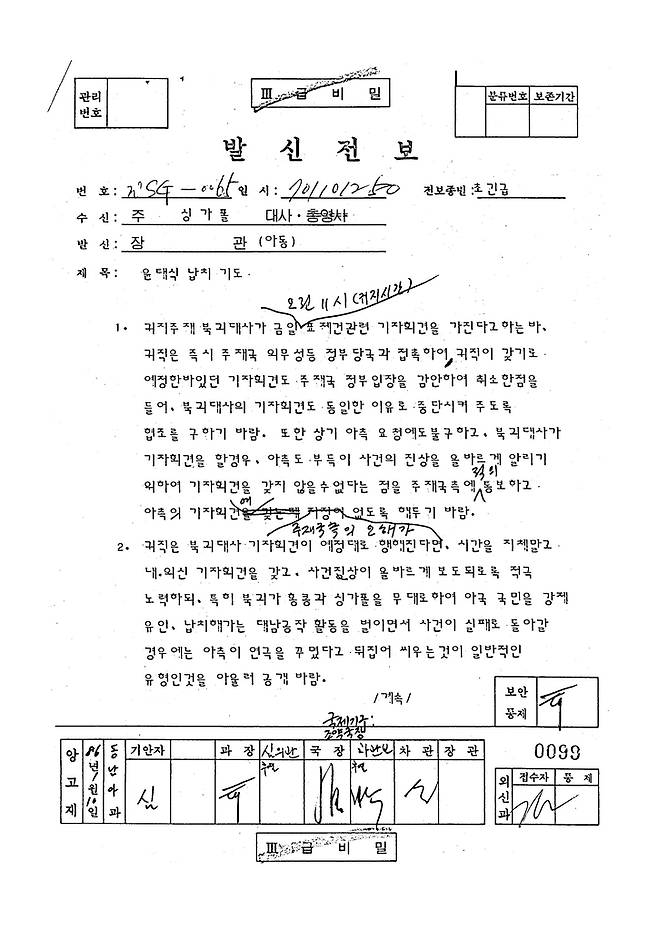 관리
번호
Ⅲ 급 비 밀
분류번호 보존기간
발 신 전 보
번 호: WSG-0065 일 시: 701101250 전보종별: 초긴급
수 신: 주 싱가폴 대사·총영사
발 신: 장 관 (아동)
제 목: 윤태식 납치 기도.
오전 11시(귀지시간)
1. 귀지주재 북괴대사가 금일 표제건관련 기자회견을 가진다고하는바,
귀직은 즉시 주재국 외무성등 정부당국과 접촉하여, 귀직이 갖기로
예정한바있던 기자회견도 주재국 정부입장을 감안하여 취소한점을
들어, 북괴대사의 기자회견도 동일한 이유로 중단시켜 주도록
협조를 구하기 바람. 또한 상기 아측 요청에도불구하고, 북괴대사가
기자회견을 할경우, 아측도 부득이 사건의 진상을 올바르게 알리기
위하여 기자회견을 갖지 않을수없다는 점을 주재국측에 통보하고
아측의 기자회견을 갖는데 지장이 없도록 해두기 바람.
에
주재국측의 오해가
2. 귀직은 북괴대사 기자회견이 예정대로 행해진다면, 시간을 지체말고
내.외신 기자회견을 갖고, 사건진상이 올바르게 보도되로록 적극
노력하되, 특히 북괴가 홍콩과 싱가폴을 무대로하여 아국 국민을 강제
유인, 납치해가는 대남공작 활동을 벌이면서 사건이 실패로 돌아갈
경우에는 아측이 연극을 꾸몄다고 뒤집어 씌우는것이 일반적인
유형인것을 아울러 공개 바람.
/계속/
보안
통제
국제기구:
조약국장
앙고재 동남아과
기안자 과 장 심의관 국 장 차관보 차 관 장 관
심
0099
외신과 접수자 통 제
Ⅲ 급 비 밀